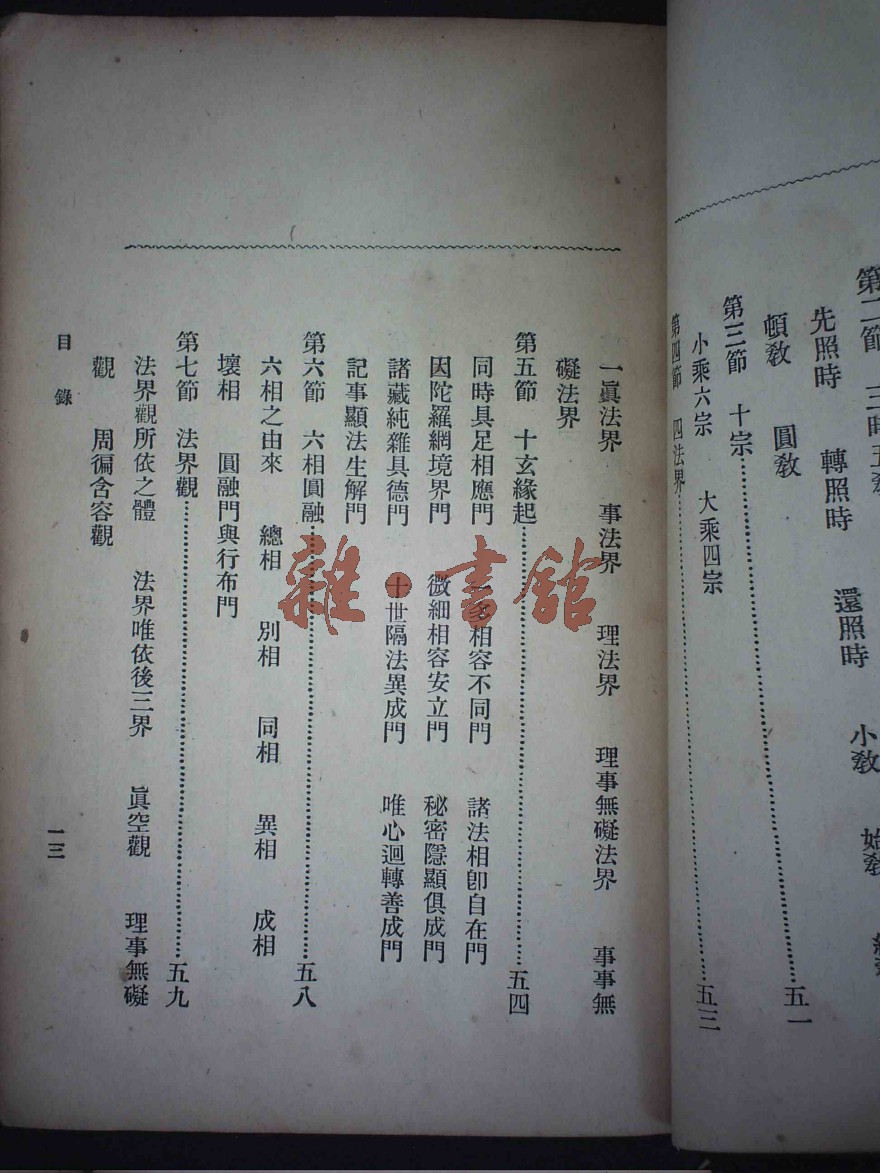 第二節　三時五教
先照時　轉照時　還照時　小教　始教
頓教　圓教
第三節　十宗…………五一
小乘六宗　大乘四宗
第四節　四法界…………五三
一眞法界　事法界　理法界　理事無礙法界　事事無
礙法界
第五節　十玄緣起…………五四
同時具足相應門　多相容不同門　諸法相卽自在門
因陀羅網境界門　微細相容安立門　秘密隱顯俱成門
諸藏純雜具德門　十世隔法異成門　唯心迴轉善成門
記事顯法生解門
第六節　六相圓融…………五八
六相之由來　總相　別相　同相　異相　成相
壞相　圓融門與行布門
第七節　法界觀…………五九
法界觀所依之體　法界唯依後三界　眞空觀　理事無礙
觀　周徧含容觀
目錄
一三
雜·書館